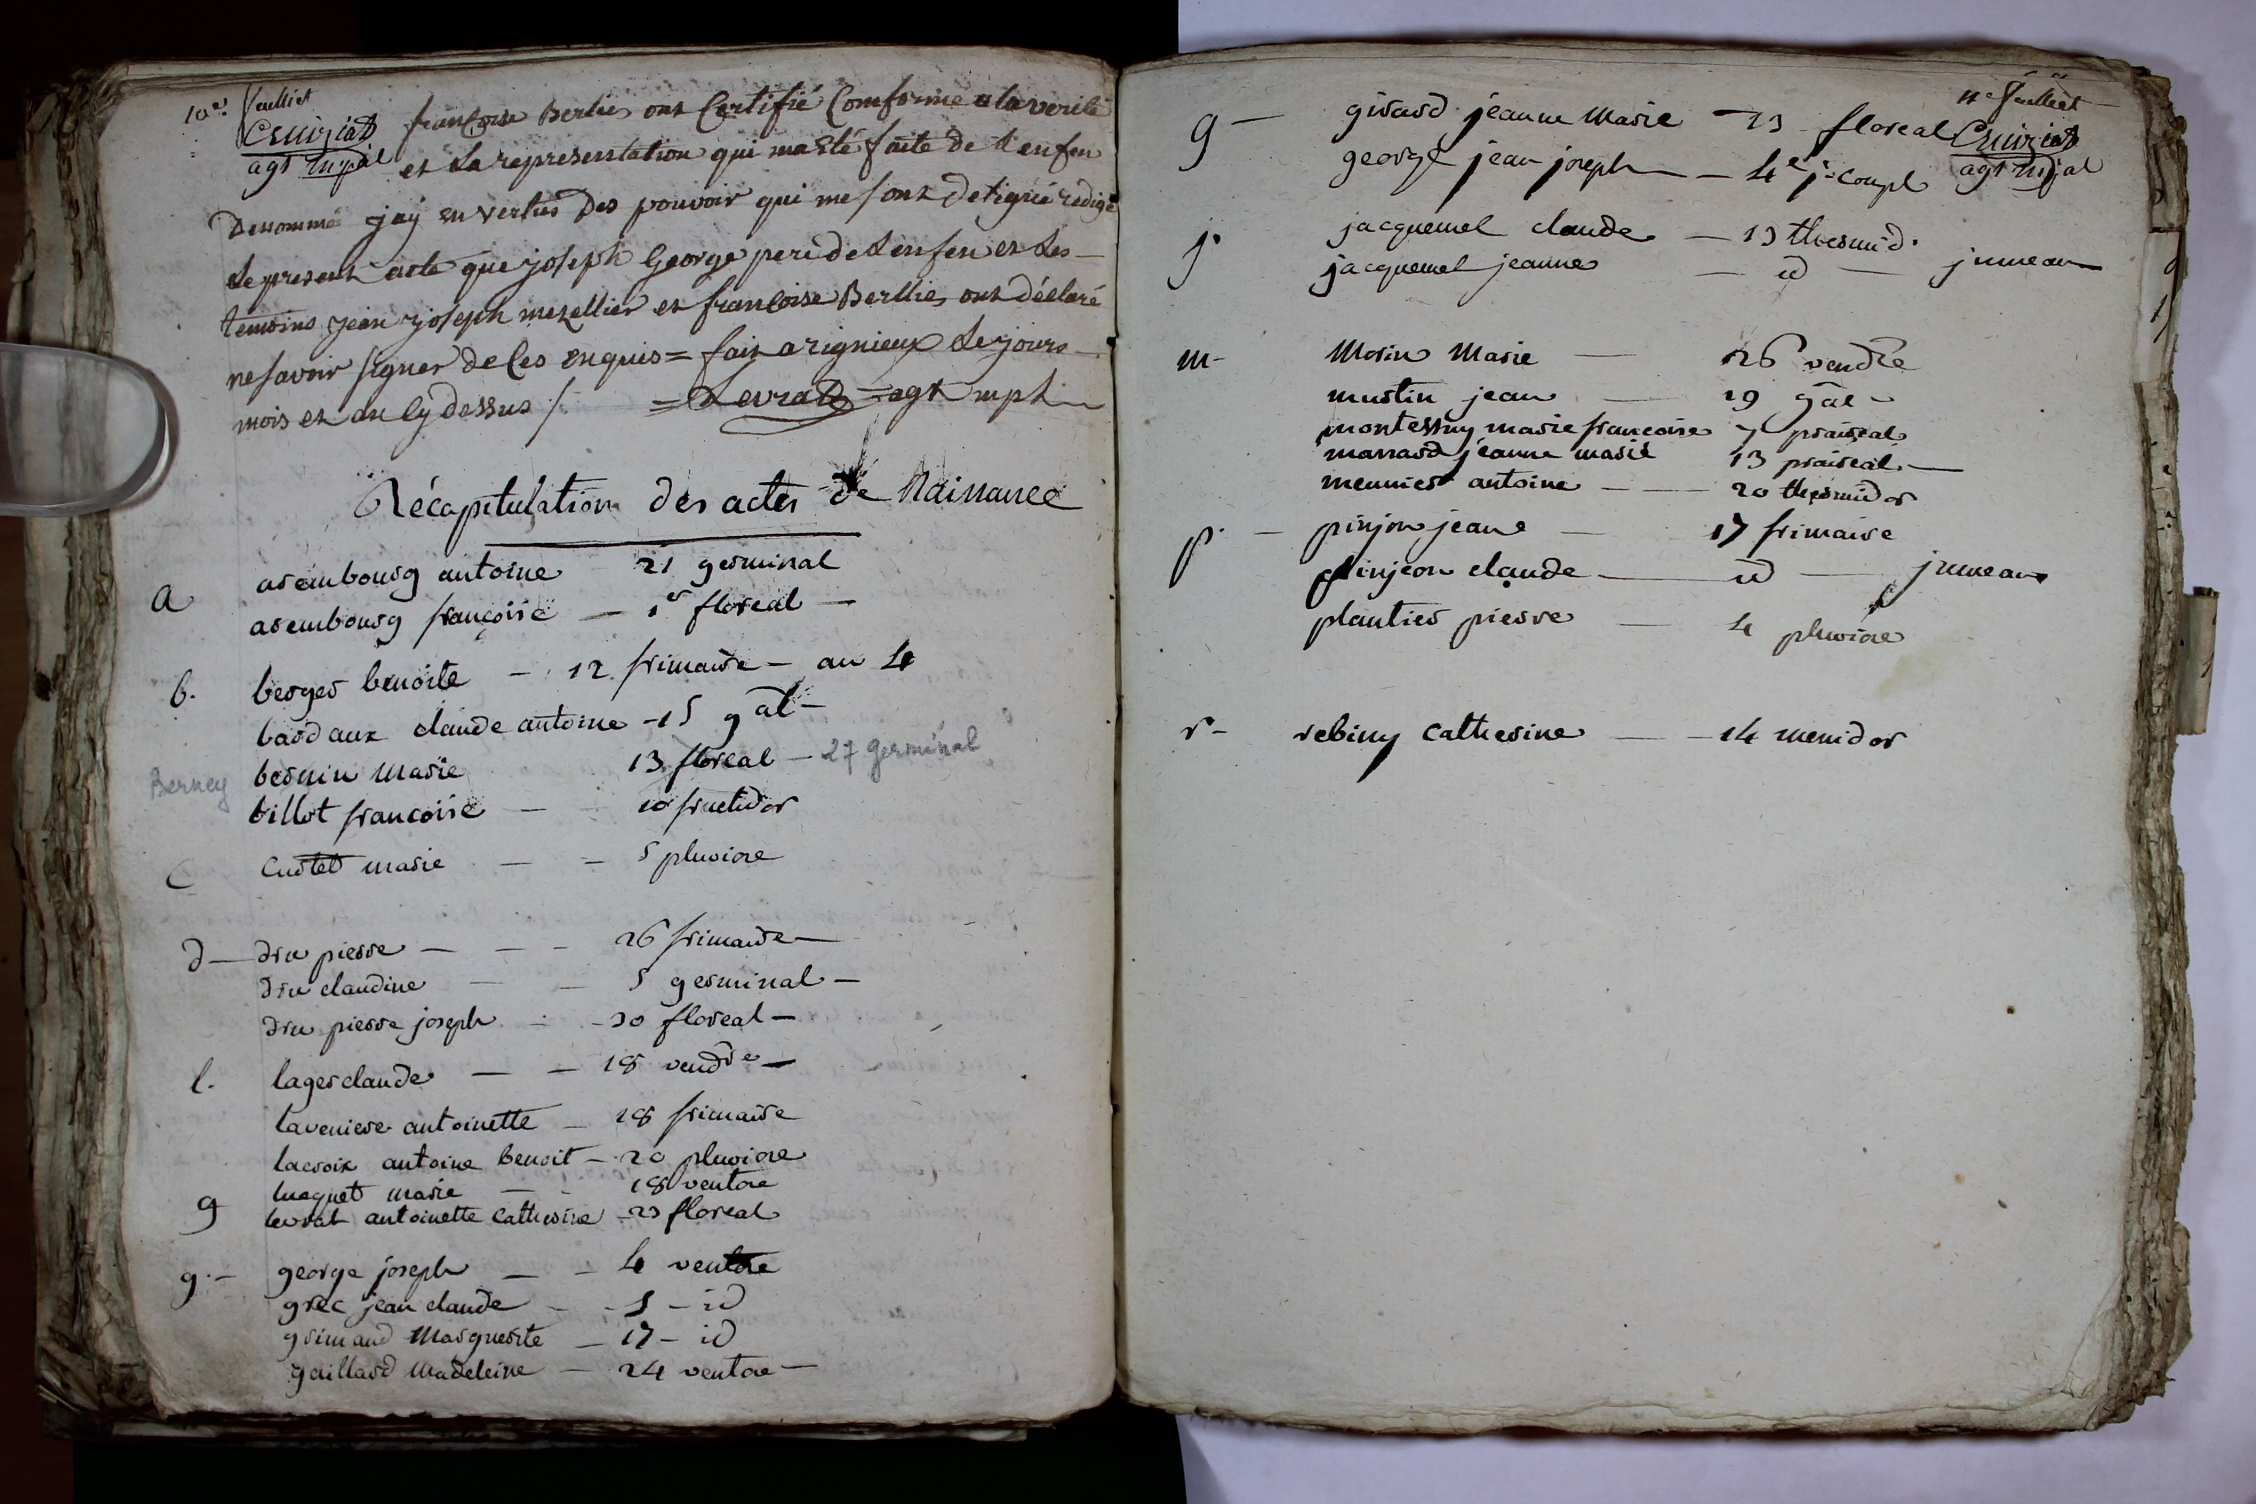 10e feulliet
Cruiziat
agt mpal
françoise Berlie ont Certifié Comforme a la verité
et La representation qui ma Eté faite de L'enfen
Denommé jay en vertus Des pouvoir qui me sont Deligué redigé
Le present acte que joseph George pere de Lenfen et Les
temoins jean joseph mezellier et françoise Berllie ont déclaré
ne savoir signer de Ces enquis = fait a rignieux Le jours
mois et an Cy dessus /. = Levrat = agt mpl
Récapitulation des actes de Naissance
a arembourg antoine 21 germinal
arembourg françoise — 1er floreal —
b. berger benoite — 12 frimaire — an 4
bardaux claude antoine - 15 gal —
Berney bernin Marie 13 floreal — 27 germinal
billot françoise — 10 fructidor
C curtet marie — — 5 pluviose
d — dru pierre — — — 26 frimaire —
dru claudine — — 5 germinal —
dru pierre joseph — 30 floreal —
l. lager claude — — 18 vendre —
laveniere antoinette — 28 frimaire
lacroix antoine benoit — 20 pluviose
luquet marie — — 18 ventose
g levrat antoinette catherine — 23 floreal
g. — george joseph — — 4 ventose
grec jean claude — — 5 — id
grimaud Marguerite — 17 — id
gaillard Madeleine — 24 ventose —
11e feulliet
Cruiziat
agt mpal
g — girard jeanne Marie — 23 floreal
george jean joseph — 4e j. compl
j. jacquemel claude — 13 thermid.
jacquemel jeanne — id — jumeau
m — Morin Marie — 26 vendre
mustin jean — 29 gal —
montessuy marie françoise 7 prairial
manard jeanne marie 13 prairial —
meunier antoine — 20 thermidor
p. — pinjon jeane — 17 frimaire
pinjeon claude — id — jumeau
plantier pierre — 4 pluviose
r — rebiny catherine — 14 messidor